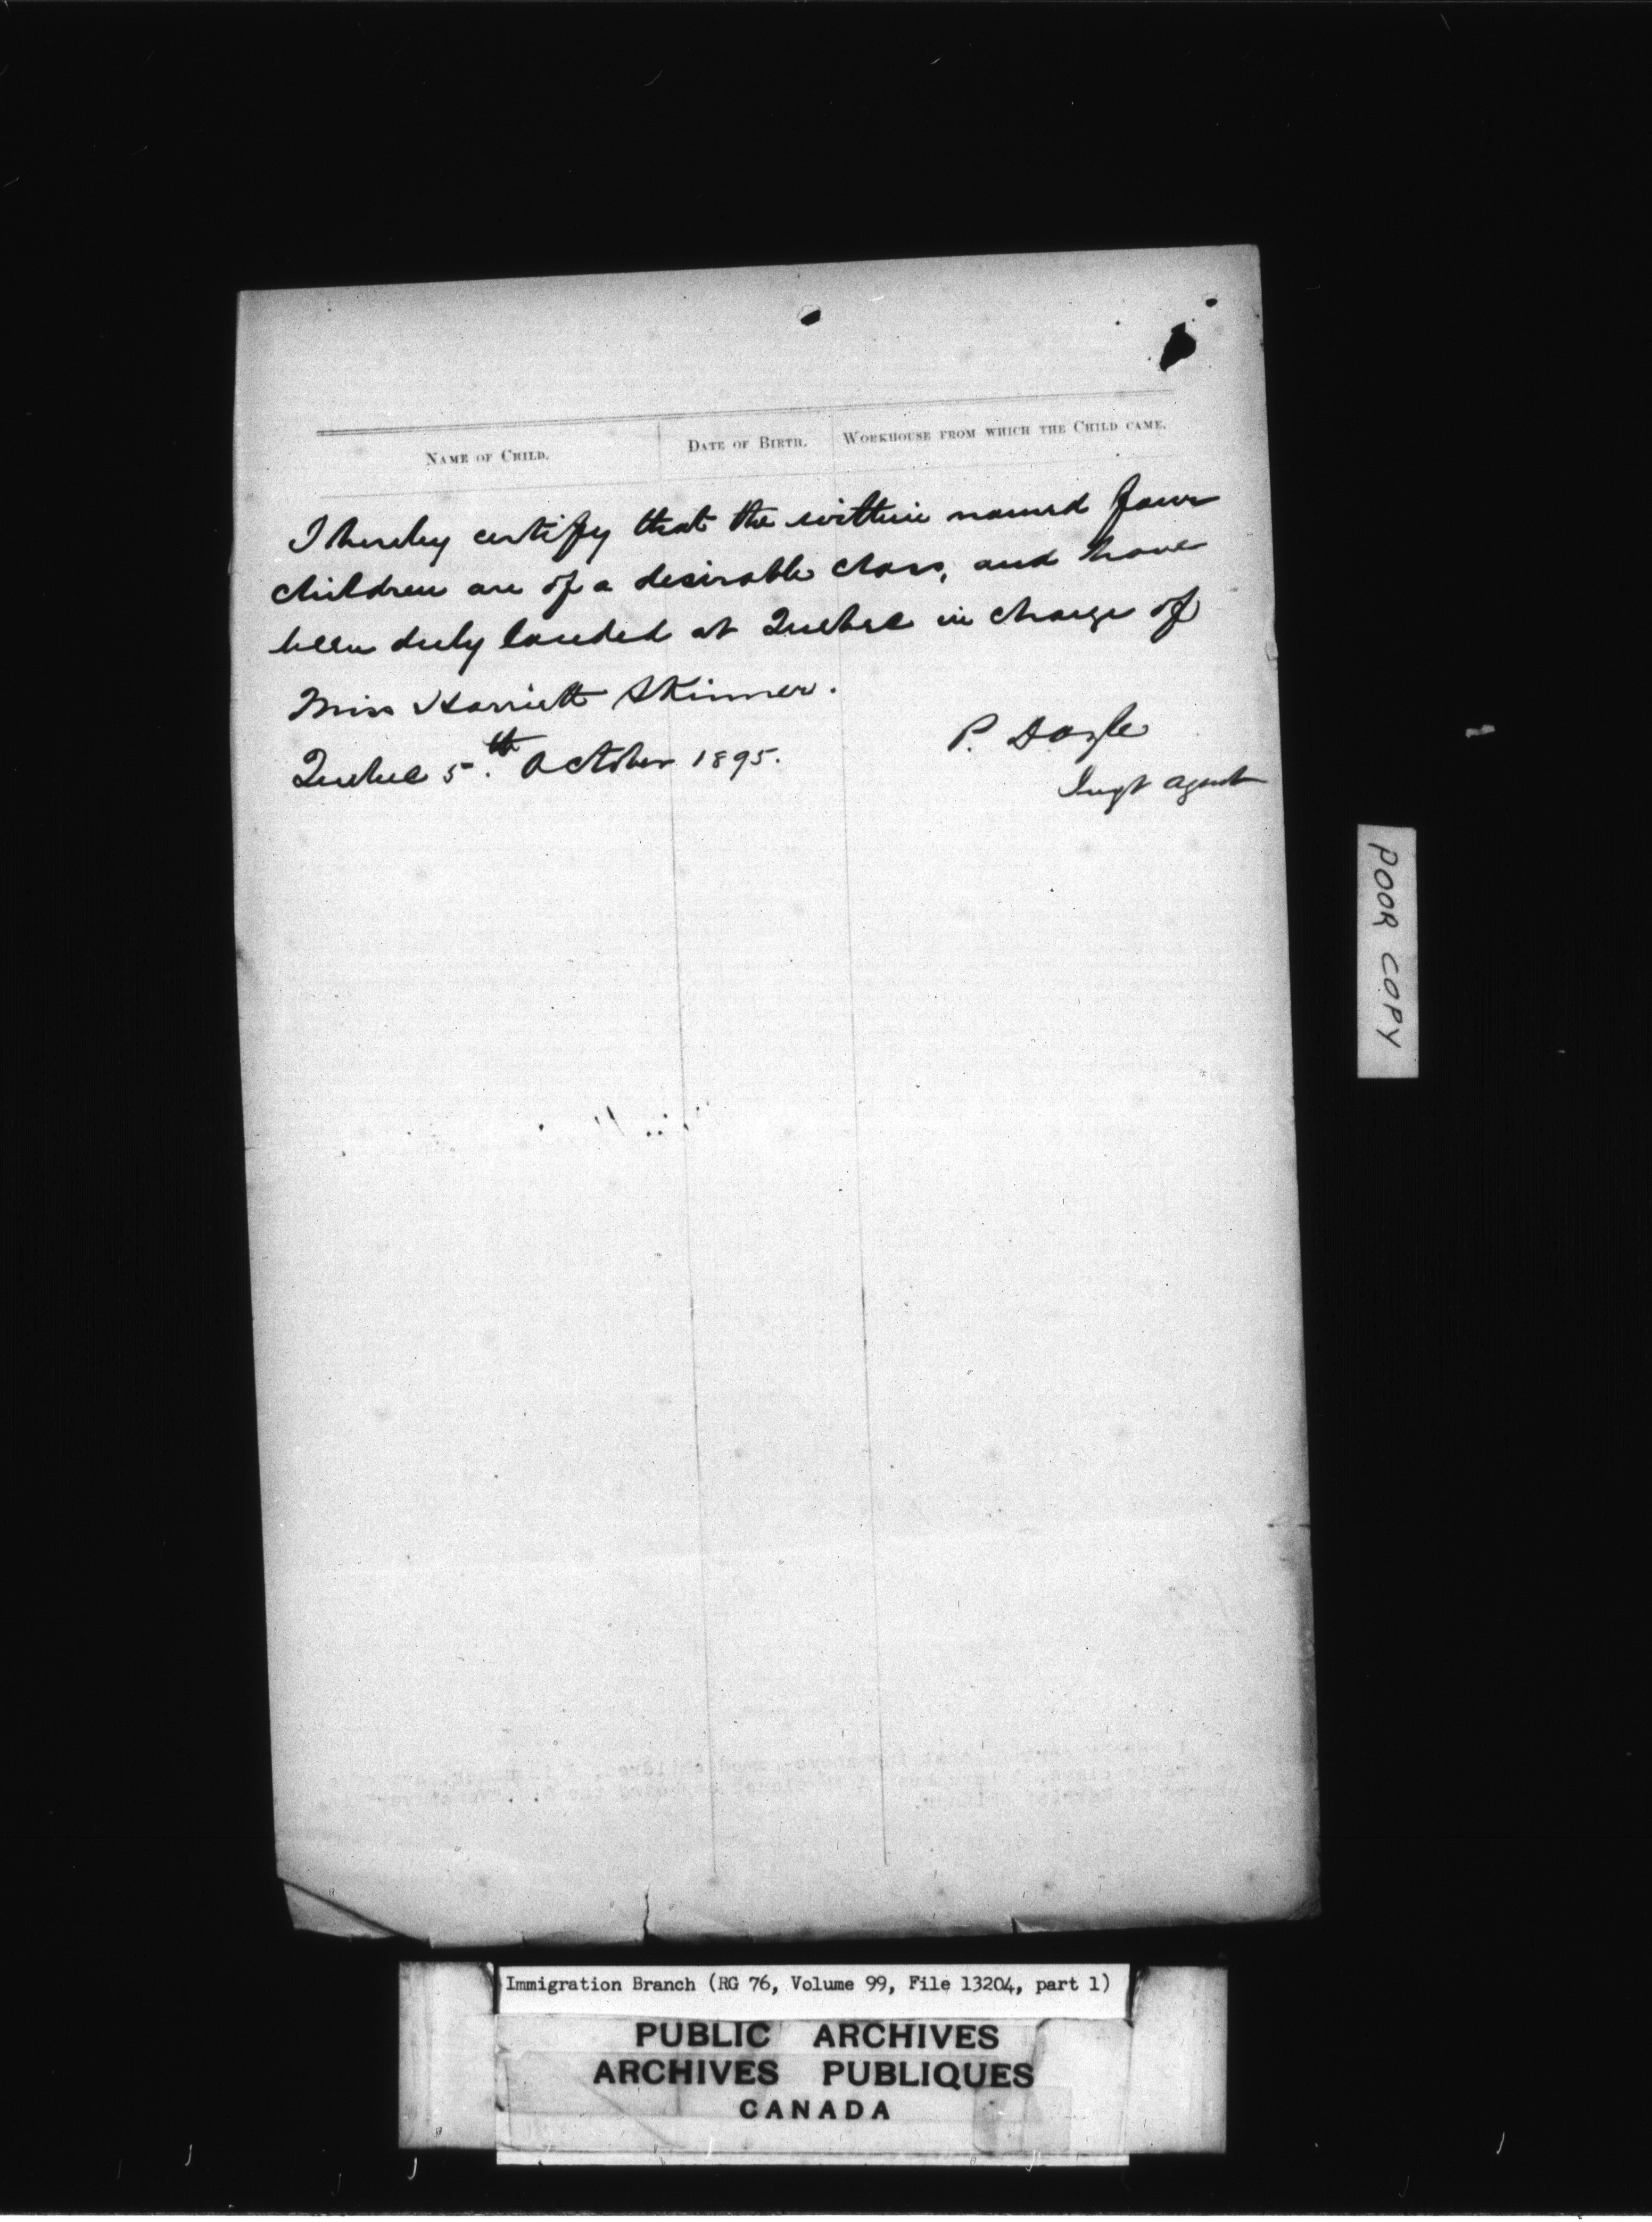 NAME OF CHILD. DATE OF BIRTH. WORKHOUSE FROM WHICH THE CHILD CAME.
I hereby certify that the within named four
children are of a desirable class, and have
been duly landed at Quebec in charge of
Miss Harriett Skinner.
Quebec 5.th October 1895.
P. Doyle
Imgt agent
POOR COPY
Immigration Branch (RG 76, Volume 99, File 13204, part 1)
PUBLIC ARCHIVES
ARCHIVES PUBLIQUES
CANADA